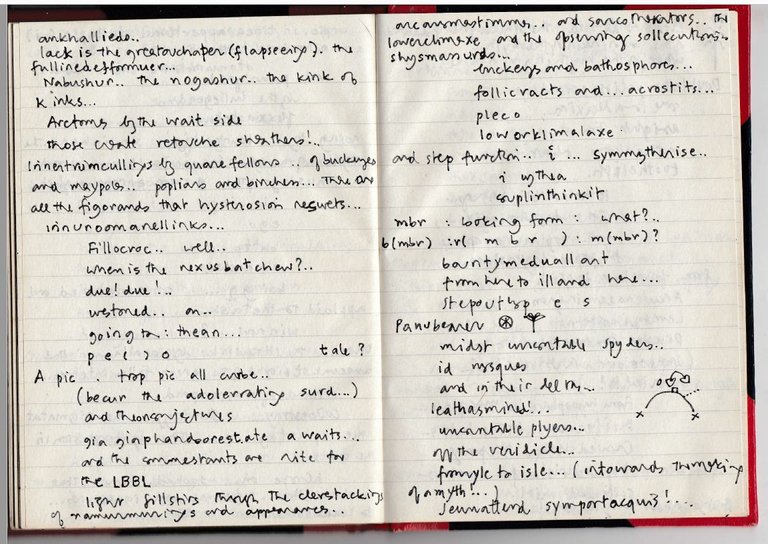 ankhalliedo..
lack is the greatauchapen (flapseeiys). the
fullinedefformuer...
Nabushur.. the nogashur.. the kink of
kinks...
Arctoms by the wait side
those create retouche sheathers!..
by quare fellows of buckeyes
and maypoles.. poplians and binches... There are
all the figorands that hysterosion
innuroomanellinks...
Fillocroc.. well..
when is the nexusbatchew?..
due! due!..
westoned.. on..
going to : thean...
tale?
A pic . trop pic all cube..
(becur the adolerrating surd...)
and theonjectures
gia giaphandorestate a waits...
and the commestants are rite for
the LBBL
light fillstirs through the cleverstackings
of and appearances..
and sarcothexators.. the
and the
shysmansurds...
linckeys and bathosphores...
follicracts and... acrostits...
pleco
loworklimalaxe
and step function.. i ... symmetherise..
i wythea
suplinthinkit
mbr : looking form : what?..
b(mbr) : r( m b r ) : m(mbr)?
bauntymeduallant
from here to illand here...
stepoutstop e s
Panubearer
midst uncontable spyders..
id mosques
and in their delray...
leathasmined!...
uncantable plyers...
off the veridicle...
fromyle to isle... (intowards themaking
of a myth!..)
jeunattend symportacquis!...